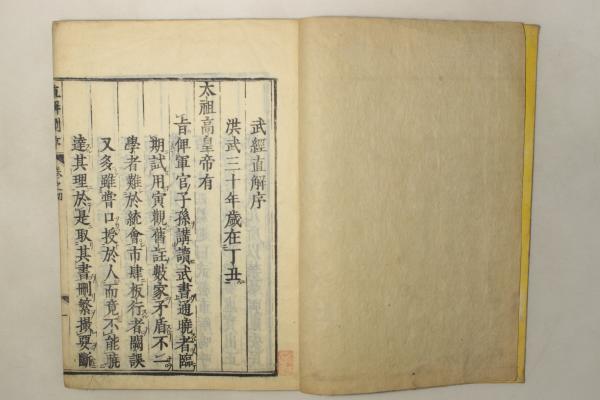 武經直解序
洪武三十年歲在丁丑
太祖高皇帝有
旨俾軍官子孫講讀武書通曉者臨
期試用寅觀舊註數家矛盾不二
學者難於統會市肆板行者闕誤
又多雖嘗口授於人而竟不能曉
達其理於是取其書刪繁撮要斷
直解開宗